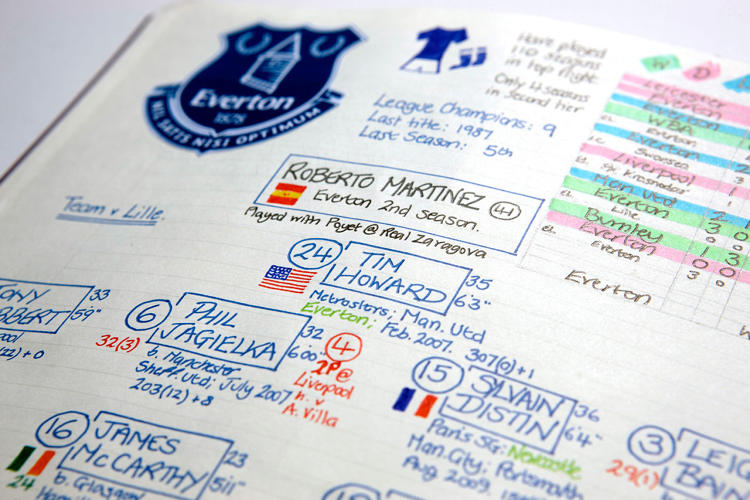 Everton
1878
NIL SATIS NISI OPTIMUM
Have played
110 seasons
in top flight
Only 4 seasons
in second tier
League Champions: 9
Last title: 1987
Last Season: 5th
W D
Leicester
Everton
WBA
Everton
Everton
Swansea
Liverpool
Everton
FK Krasnodar
Man Utd
Everton
EL Lille
Everton
Burnley
Everton
EL
Everton
Everton
ROBERTO MARTINEZ 41
Everton 2nd Season.
Played with Poyet @ Real Zaragova
Team v Lille.
24 TIM
HOWARD
35
6'3"
Metrostars; Man. Utd
Everton; Feb. 2007. 307(0)+1
33
5'9"
6 PHIL
JAGIELKA
32
6'00"
32(3)
b. Manchester
Sheff. Utd; July 2007
203(12)+8
4
2P@
Liverpool
h. v
A. Villa
15 SYLVAIN
DISTIN
36
6'4"
Paris SG; Newcastle
Man. City; Portsmouth
Aug 2009
3
29(1)
16 JAMES
McCARTHY
23
5'11"
24
b. Glasgow